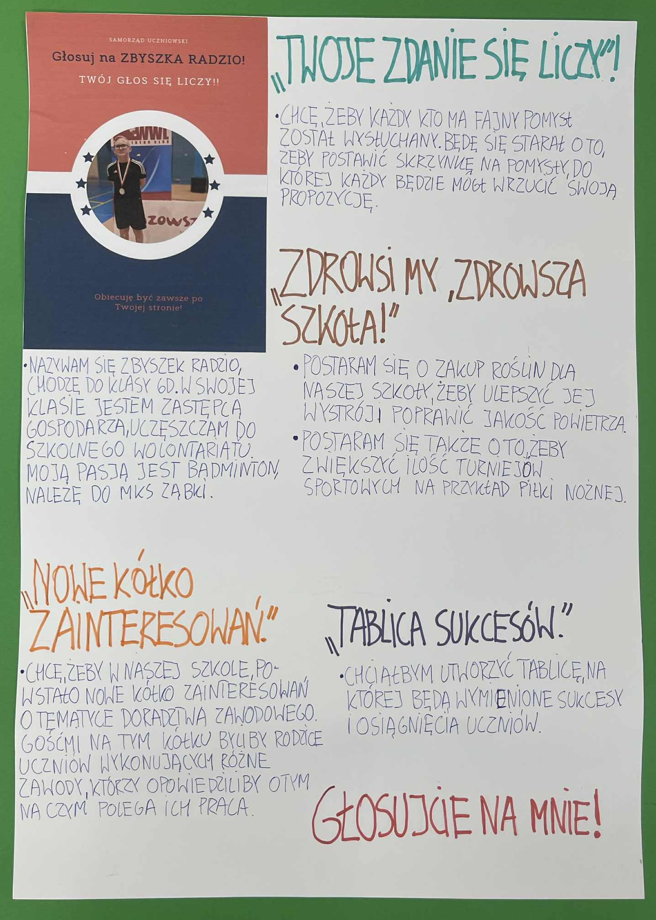 SAMORZĄD UCZNIOWSKI
Głosuj na ZBYSZKA RADZIO!
TWÓJ GŁOS SIĘ LICZY!!
ZOWSZ
Obiecuję być zawsze po
Twojej stronie!
•NAZYWAM SIĘ ZBYSZEK RADZIO,
CHODZĘ DO KLASY 6D. W SWOJEJ
KLASIE JESTEM ZASTĘPCĄ
GOSPODARZA, UCZĘSZCZAM DO
SZKOLNEGO WOLONTARIATU.
MOJĄ PASJĄ JEST BADMINTON,
NALEŻĘ DO MKS ZĄBKI.
„TWOJE ZDANIE SIĘ LICZY”!
•CHCĘ, ŻEBY KAŻDY KTO MA FAJNY POMYSŁ
ZOSTAŁ WYSŁUCHANY. BĘDĘ SIĘ STARAŁ O TO,
ŻEBY POSTAWIĆ SKRZYNKĘ NA POMYSŁY, DO
KTÓREJ KAŻDY BĘDZIE MÓGŁ WRZUCIĆ SWOJĄ
PROPOZYCJĘ.
„ZDROWSI MY, ZDROWSZA
SZKOŁA!”
•POSTARAM SIĘ O ZAKUP ROŚLIN DLA
NASZEJ SZKOŁY, ŻEBY ULEPSZYĆ JEJ
WYSTRÓJ I POPRAWIĆ JAKOŚĆ POWIETRZA.
•POSTARAM SIĘ TAKŻE O TO, ŻEBY
ZWIĘKSZYĆ ILOŚĆ TURNIEJÓW
SPORTOWYCH NA PRZYKŁAD PIŁKI NOŻNEJ.
„NOWE KÓŁKO
ZAINTERESOWAŃ.”
•CHCĘ, ŻEBY W NASZEJ SZKOLE, PO-
WSTAŁO NOWE KÓŁKO ZAINTERESOWAŃ
O TEMATYCE DORADZTWA ZAWODOWEGO.
GOŚĆMI NA TYM KÓŁKU BYLIBY RODZICE
UCZNIÓW WYKONUJĄCYCH RÓŻNE
ZAWODY, KTÓRZY OPOWIEDZILIBY O TYM
NA CZYM POLEGA ICH PRACA.
„TABLICA SUKCESÓW.”
•CHCIAŁBYM UTWORZYĆ TABLICĘ, NA
KTÓREJ BĘDĄ WYMIENIONE SUKCESY
I OSIĄGNIĘCIA UCZNIÓW.
GŁOSUJCIE NA MNIE!